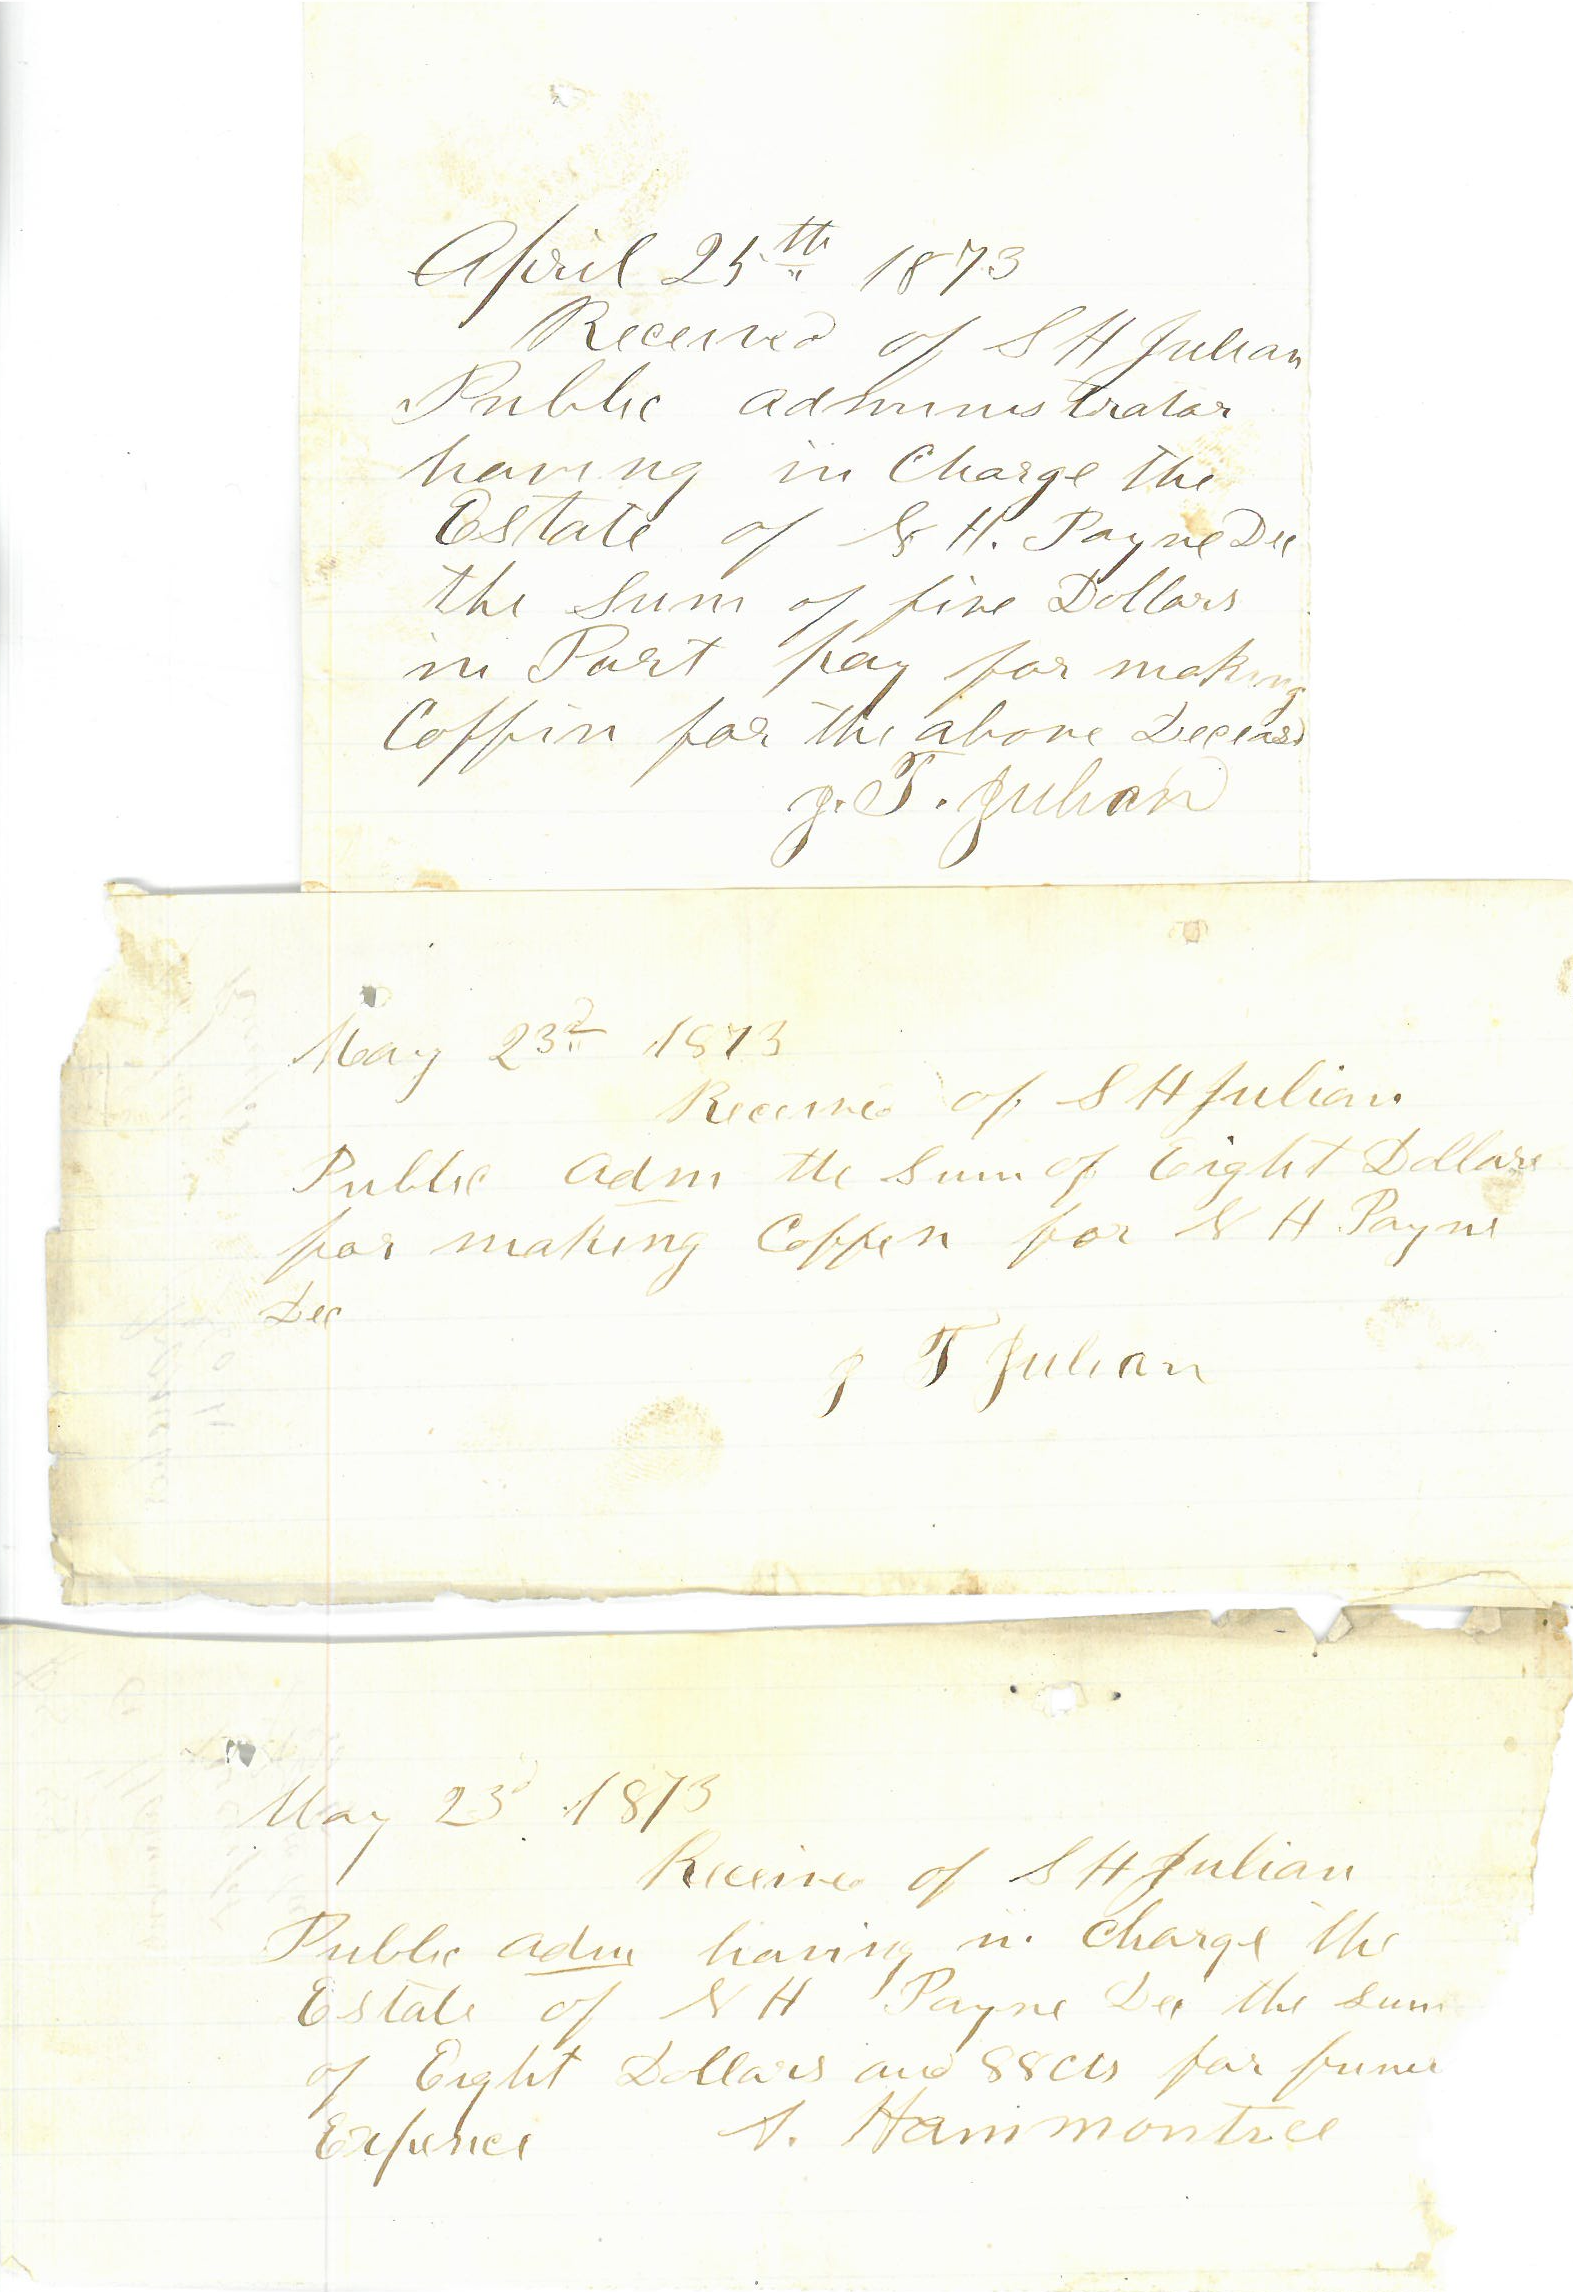 April 25th 1873
Received of S H Julian
Public administrator
having in Charge the
Estate of N H. Payne Dec
the Sum of five Dollars
in Part pay for making
Coffin for the above Deceasd
J. T. Julian
May 23d 1873
Received of S H Julian
Public adm the Sum of Eight Dollars
for making Coffin for N H Payne
Dec
J T Julian
May 23d 1873
Received of S H Julian
Public adm having in charge the
Estate of N H Payne Dec the sum
of Eight Dollars and 88 cts for funer
Expence A. Hammontree